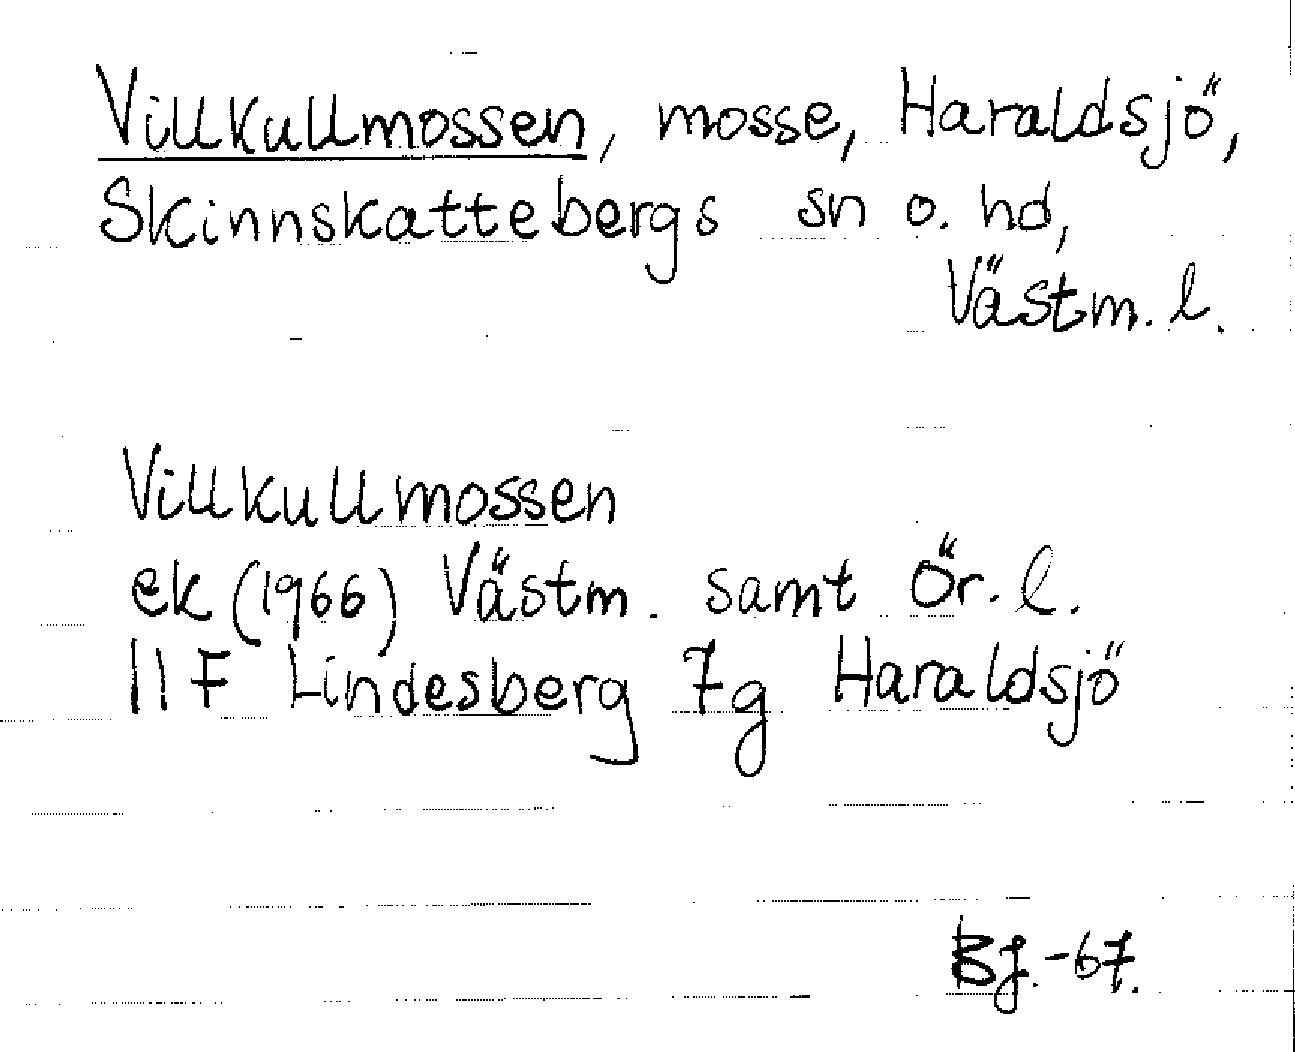 Villkullmossen, mosse, Haraldsjö,
Skinnskattebergs sn o. hd,
Västm. l.
Villkullmossen
ek (1966) Västm. samt Ör. l.
11 F Lindesberg 7g Haraldsjö
BJ.-67.